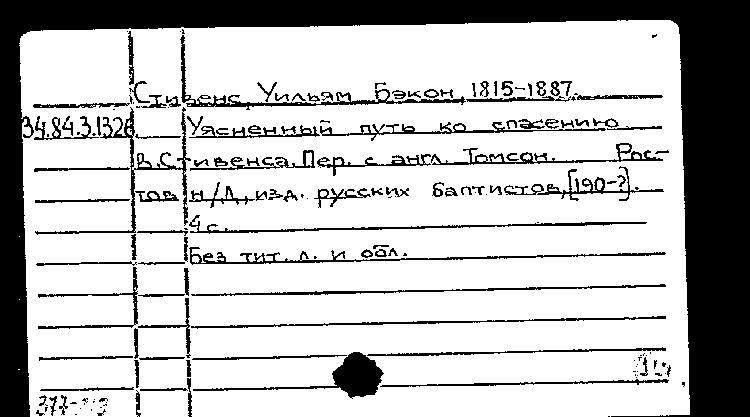 Стивенс, Уильям Бэкон, 1815-1887.
34.84.3.1326 Уясненный путь ко спасению
В. Стивенса. Пер. с англ. Томсон. Рос-
тов н/Д, изд. русских баптистов, [190-?].
4 с.
Без тит. л. и обл.